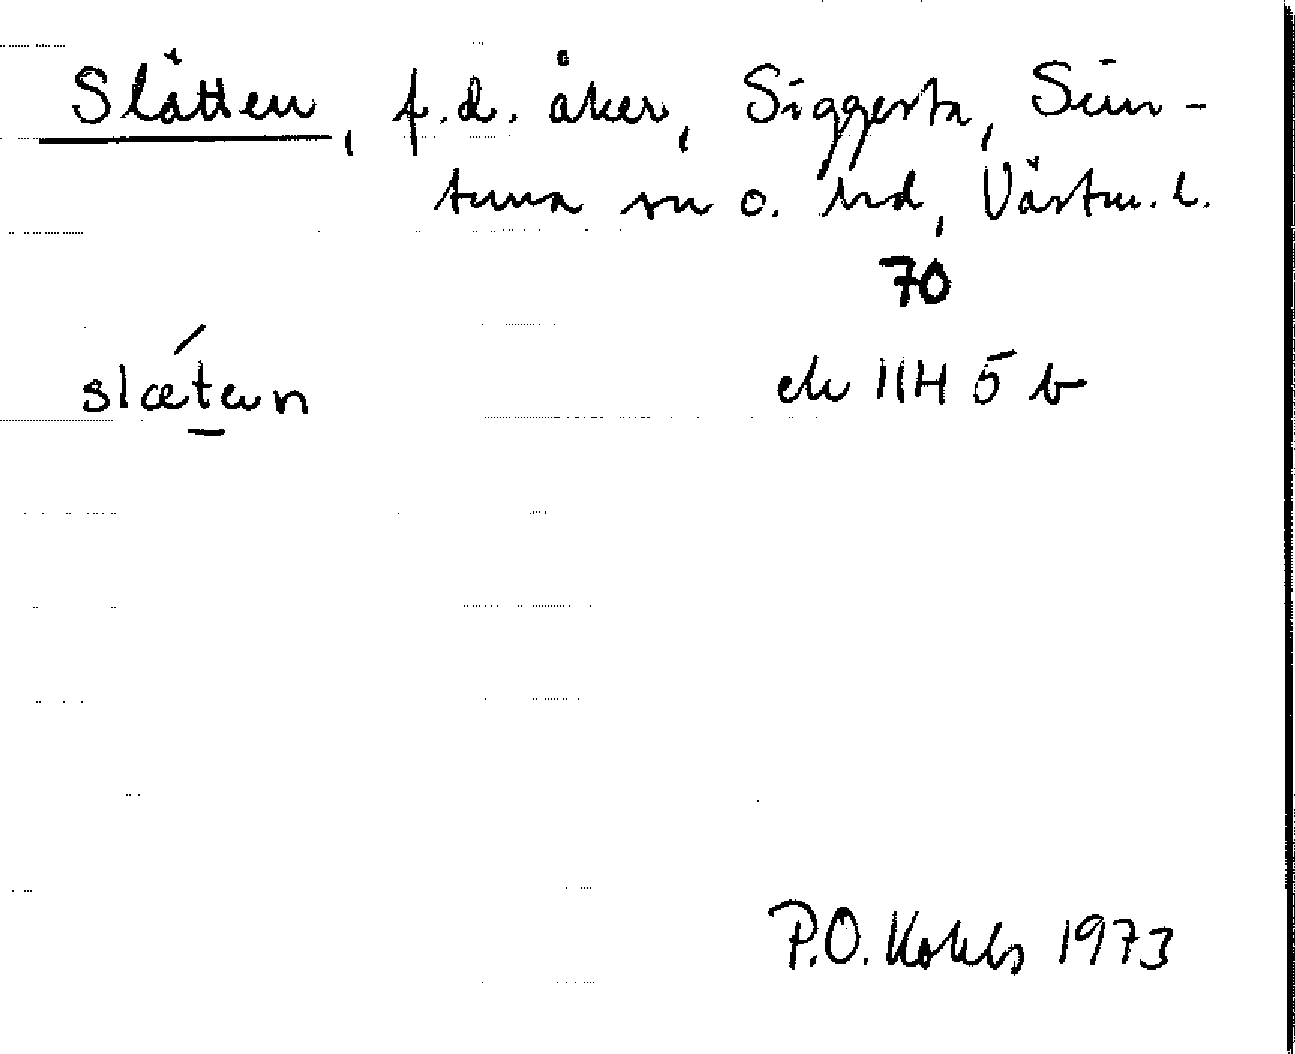 Slätten, f.d. åker, Siggesta, Sim-
tuna sn o. hd, Västm. l.
70
slæten
ek 11H 5 b
P.O. 1973